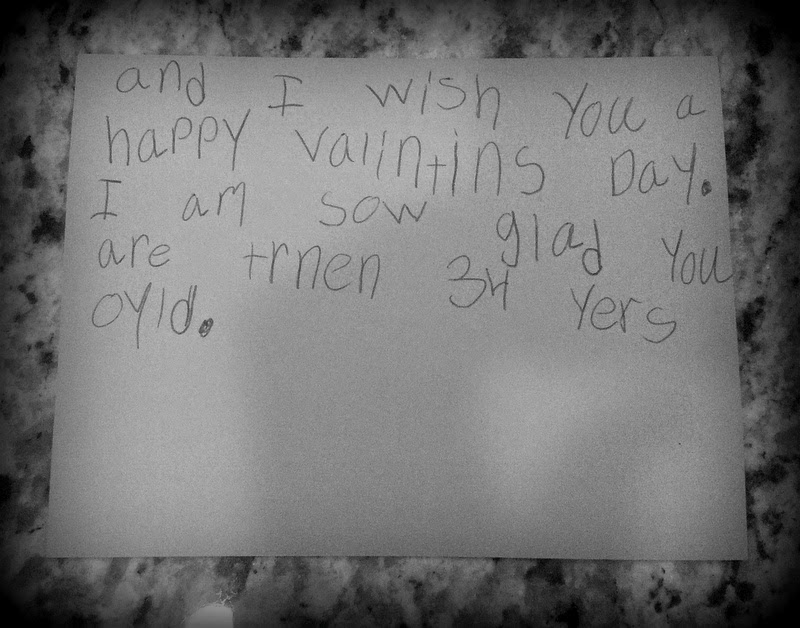 and I wish you a
happy valintins Day.
I am sow glad you
are trnen 34 yers
oyld.